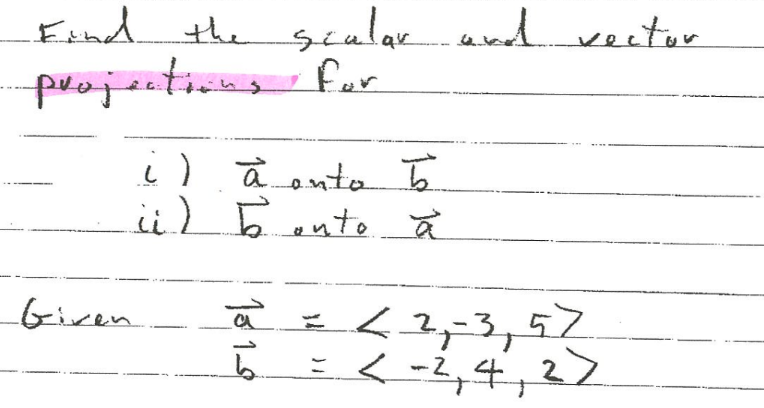 Find the scalar and vector
projections for
i) a⃗ onto b⃗
ii) b⃗ onto a⃗
Given a⃗ = < 2,-3, 5>
b⃗ = < -2, 4, 2>